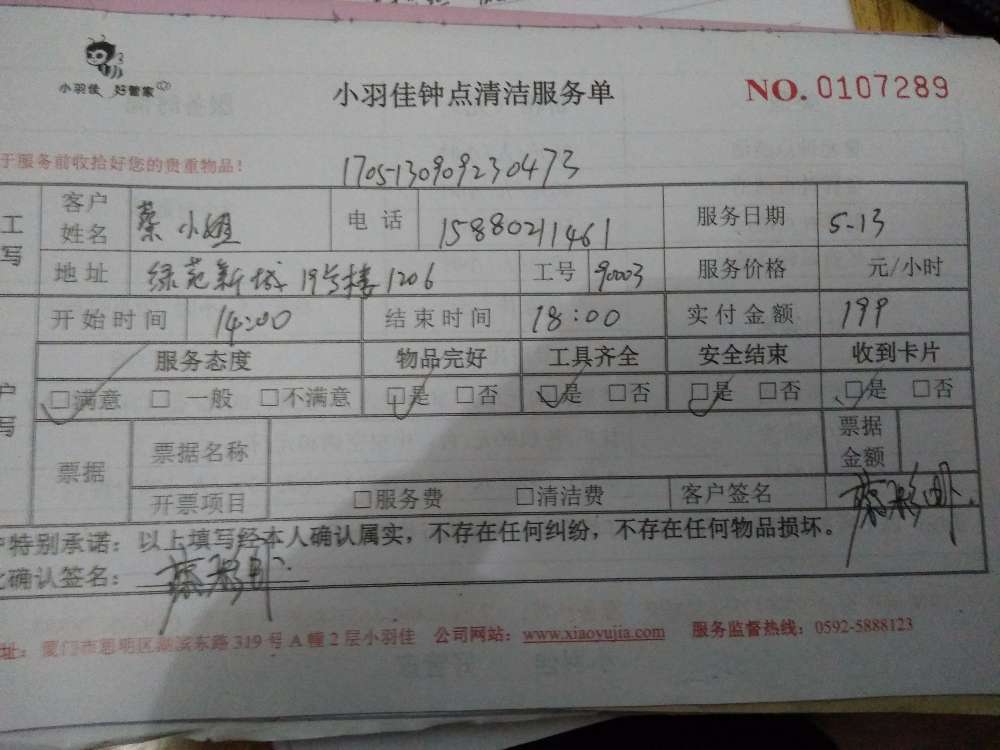 小羽佳 好管家
小羽佳钟点清洁服务单
NO. 0107289
于服务前收拾好您的贵重物品！
1705130909230473
工
写
客户姓名 蔡小姐 电话 15880211461 服务日期 5-13
地址 绿苑新城19号楼1206 工号 90003 服务价格 元/小时
开始时间 14:00 结束时间 18:00 实付金额 199
服务态度 物品完好 工具齐全 安全结束 收到卡片
户
写
□满意 □一般 □不满意 □是 □否 □是 □否 □是 □否 □是 □否
票据 票据名称 票据金额
开票项目 □服务费 □清洁费 客户签名
户特别承诺：以上填写经本人确认属实，不存在任何纠纷，不存在任何物品损坏。
确认签名：
址：厦门市思明区湖滨东路319号A幢2层小羽佳 公司网站：www.xiaoyujia.com 服务监督热线：0592-5888123